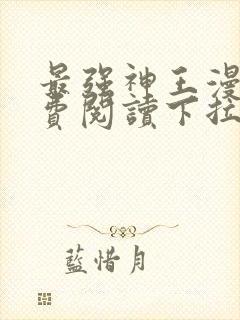 最強神王漫
費閱讀下拉
藍惜月